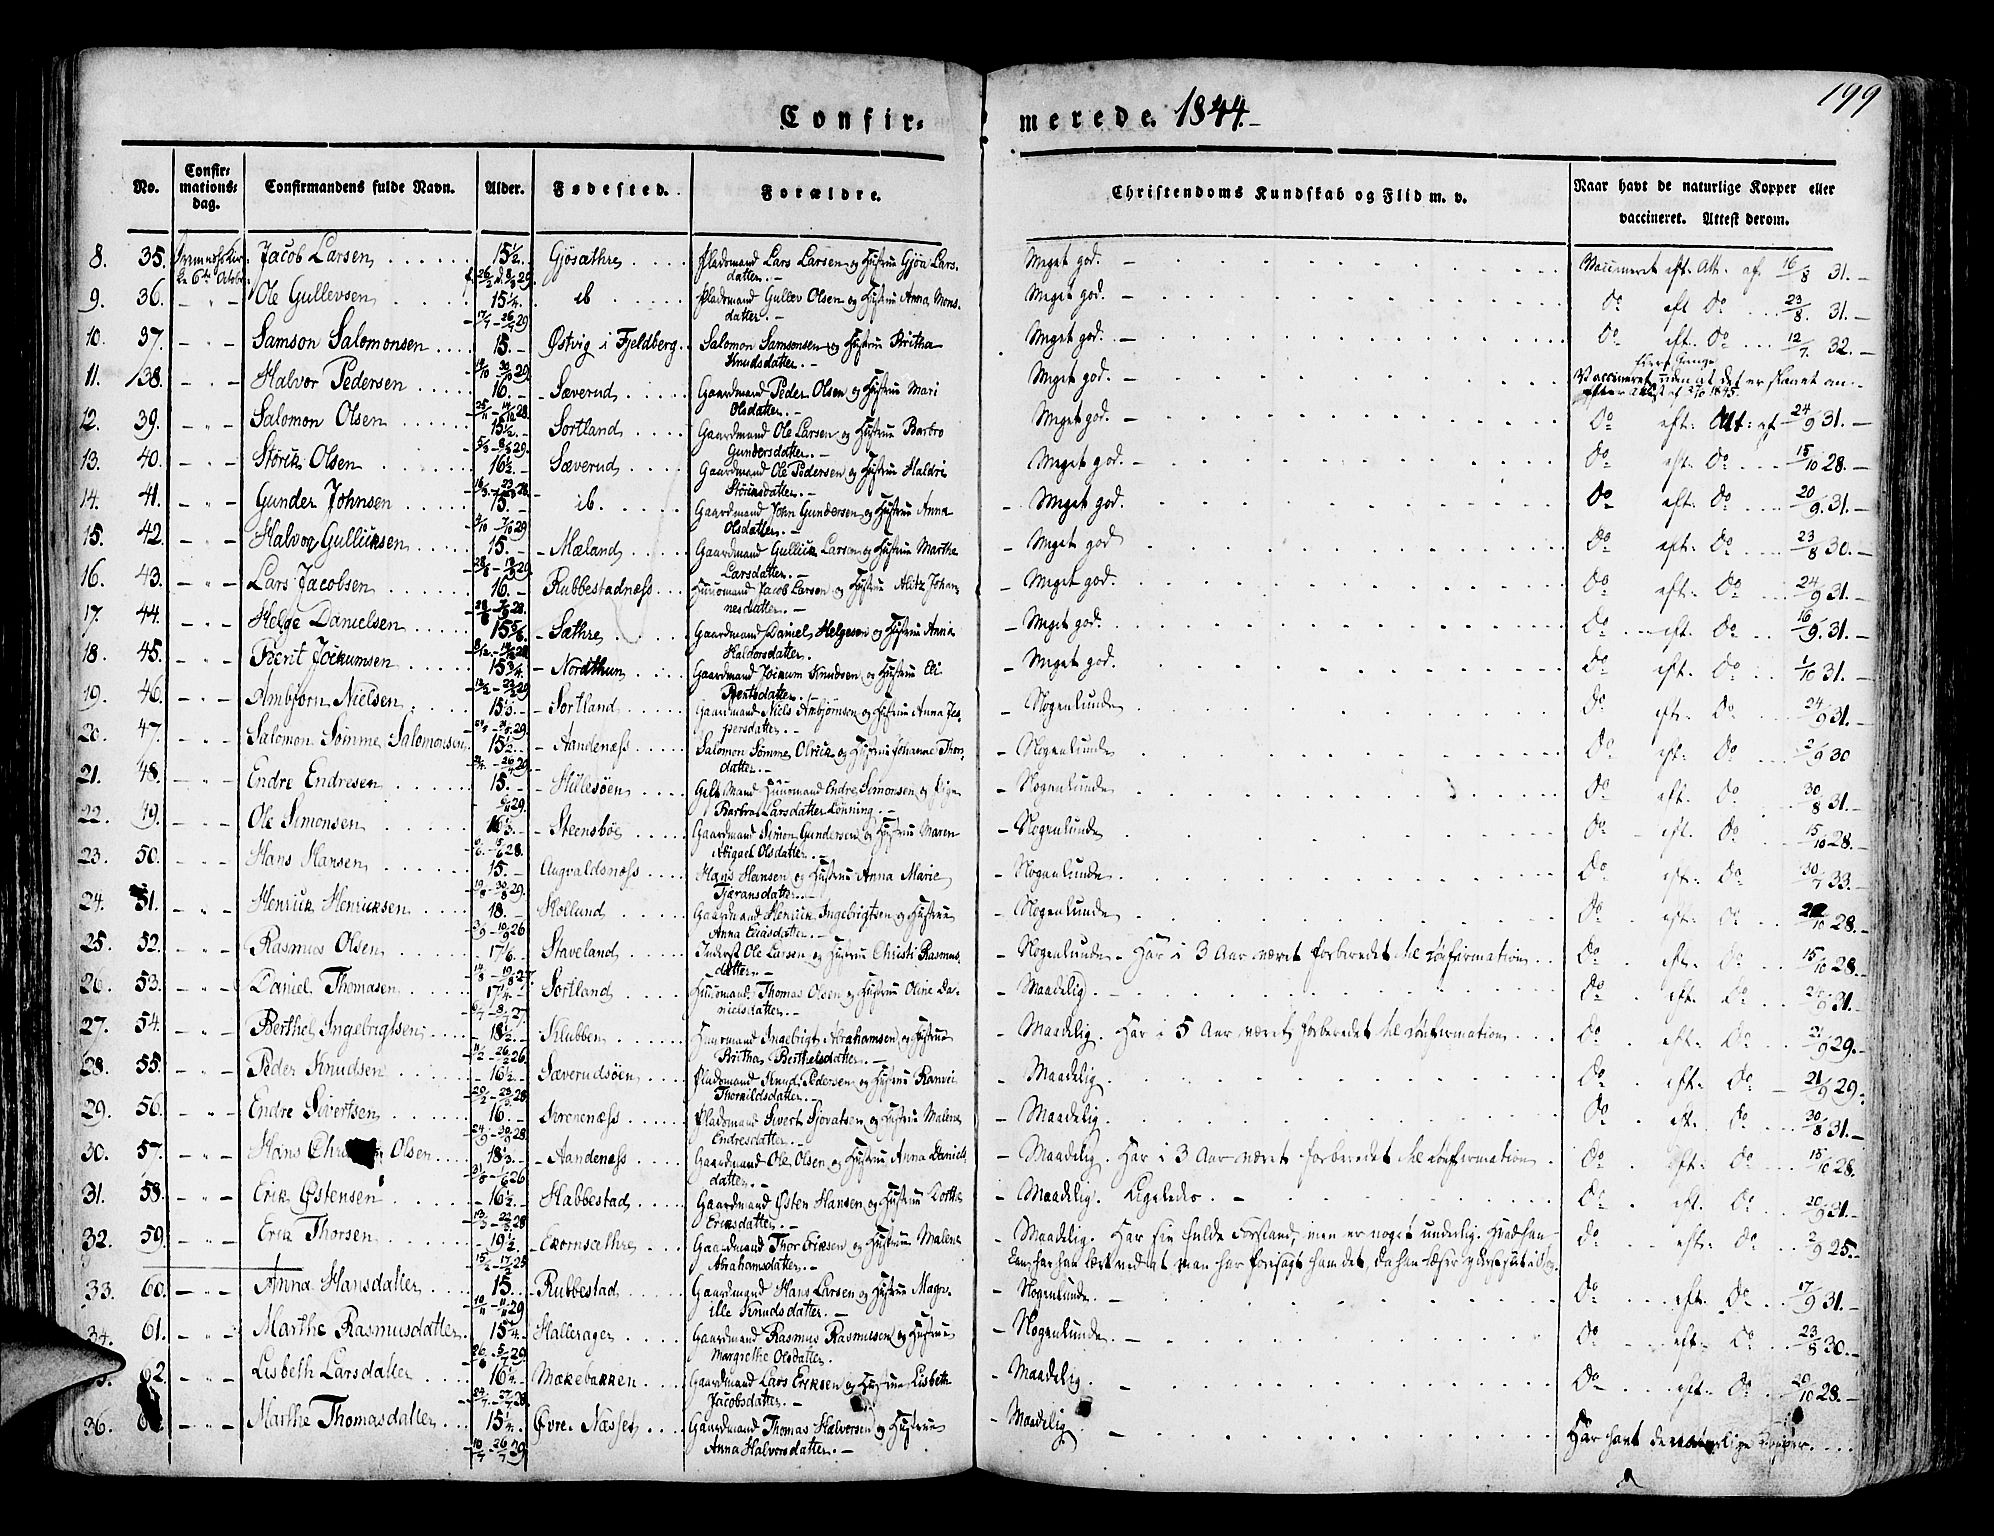 199
Confir- merede. 1844.
No. Confir-mations-dag. Confirmandens fulde Navn. Alder. Fødested. Forældre. Christendoms Kundskab og Flid m. v. Naar havt de naturlige Kopper eller vaccineret. Attest derom.
8. 35. Jacob Larsen 15½. Gjøsæthre Pladsmand Lars Larsen og Hustrue Gjøa Lars-
datter. Meget god. Vaccineret eft. Att. af 16/8 31.
9. 36. Ole Gullevsen 15¼. ib Pladsmand Gullev Olsen og Hustrue Anna Mons-
datter. Meget god. do eft do 23/8 31.
10. 37. Samson Salomonsen 15. Østvig i Fjeldberg Salomon Samsonsen og Hustrue Britha
Knudsdatter. Meget god. do eft. do 12/7 32.
11. 38. Halvor Pedersen 16. Sæverud Gaardmand Peder Olsen og Hustrue Mari
Olsdatter. Meget god. Vaccineret uden at det er slaaet an
12. 39. Salomon Olsen 15½. Sortland Gaardmand Ole Larsen og Hustrue Barbro
Gundersdatter. Meget god. do eft. Att. af 24/9 31.
13. 40. Størik Olsen 16½. Sæverud Gaardmand Ole Pedersen og Hustrue Haldri
Støriksdatter. Meget god. do eft. do 15/10 28.
14. 41. Gunder Johnsen 15. ib. Gaardmand John Gundersen og Hustrue Anna
Olsdatter. Meget god. do eft. do 20/9. 31.
15. 42. Halvor Gulliksen 15. Mæland Gaardmand Gullick Larsen og Hustrue Marthe
Larsdatter. Meget god do eft. do 23/8 30.
16. 43. Lars Jacobsen 16. Rubbestadnæss Huusmand Jacob Larsen og Hustrue Alitz Johan-
nesdatter. Meget god. do eft. do 24/9 31.
17. 44. Helge Danielsen 15 5/6. Sæthre Gaardmand Daniel Helgesen og Hustrue Anna
Haldorsdatter. Meget god. do eft. do 16/9. 31.
18. 45. Berit Jockumsen 15¾. Nordthun Gaardmand Jockum Knudsen og Hustrue Eli
Bentsdatter. Meget god. do eft. do 1/10 31.
19. 46. Ambjørn Nielsen 15⅓. Sortland Gaardmand Niels Ambjørnsen og Hustrue Anna Jes-
persdatter. Nogenlunde do eft. do 24/9 31.
20. 47. Salomon Sømme Salomonsen 15½. Aandenæss Salomon Sømme Olrick og Hustrue Johanne Thor-
datter. Nogenlunde do eft. do 2/9 30
21. 48. Endre Endresen 15. Stillesøen Gift Mand Huusmand Endre Simonsen og Pigen
Barbra Larsdatter Lønning. Nogenlunde do eft. do 30/8 31.
22. 49. Ole Simonsen 16⅓. Steensbøe Gaardmand Simon Gundersen og Hustrue Maren
Abigael Olsdatter. Nogenlunde do eft. do 15/10 28.
23. 50. Hans Hansen 15. Augvaldsnæss Hans Hansen og Hustrue Anna Marie
Tjæransdatter. Nogenlunde do eft. do 30/7 33.
24. 51. Henrik Henriksen 18. Hollund Gaardmand Henrik Ingebrigtsen og Hustrue
Anna Eliasdatter. Nogenlunde do eft. do 28.
25. 52. Rasmus Olsen 17 1/6. Staveland Inderst Ole Larsen og Hustrue Christi Rasmus-
datter. Nogenlunde. Har i 3 Aar været forberedet til Confirmation do eft. do 15/10 28.
26. 53. Daniel Thomasen 17¼. Sortland Huusmand Thomas Olsen og Hustrue Oline Da-
nielsdatter. Maadelig. do eft. do 24/9 31.
27. 54. Berthel Ingebrigtsen 18½. Klubben Huusmand Ingebrigt Abrahamsen og Hustrue
Britha Berthelsdatter. Maadelig. Har i 5 Aar været forberedet til Confirmation do eft. do 21/9 29.
28. 55. Peder Knudsen 16½. Sæverudsøen Pladsmand Knud Pedersen og Hustrue Ranvei
Thorkildsdatter. Maadelig do eft. do 21/9 29.
29. 56. Endre Sivertsen 16. Norenæss Pladsmand Sivert Sjovatsen og Hustrue Malene
Endresdatter. Maadelig. do eft. do 30/8 31.
30. 57. Hans Olsen 18⅓. Aandenæss Gaardmand Ole Olsen og Hustrue Anna Daniels-
datter. Maadelig. Har i 3 Aar været forberedet til Confirmation do eft. do 15/10 28.
31. 58. Erik Østensen 16½. Habbestad Gaardmand Østen Hansen og Hustrue Dorthe
Eriksdatter. Maadelig. Ligeledes. do eft. do 20/9 31.
32. 59. Erik Thorsen 19½. Ekornsæthre Gaardmand Thor Eriksen og Hustrue Malene
Abrahamsdatter. Maadelig. Har sin fulde Forstand, men er noget underlig. Hvad han
kan, har han lært ved at man har foresagt ham det, da han læser yderst slet i Bog. do eft. do 2/9 25.
33. 60. Anna Hansdatter 15. Rubbestad Gaardmand Hans Larsen og Hustrue Magn-
ille Knudsdatter. Nogenlunde. do eft. do 17/9 31.
34. 61. Marthe Rasmusdatter 15¼. Hallerager Gaardmand Rasmus Rasmusen og Hustrue
Margrethe Olsdatter. Nogenlunde. do eft. do 23/8 30.
62. Lisbeth Larsdatter 16¼. Mækebakken Gaardmand Lars Eriksen og Hustrue Lisbeth
Jacobsdatter. Maadelig. do eft. do 20/10 28.
36. Marthe Thomasdatter 15¼. Øvre Næsset Gaardmand Thomas Halvorsen og Hustrue
Anna Halvorsdatter. Maadelig. Har havt de naturlige Kopper.